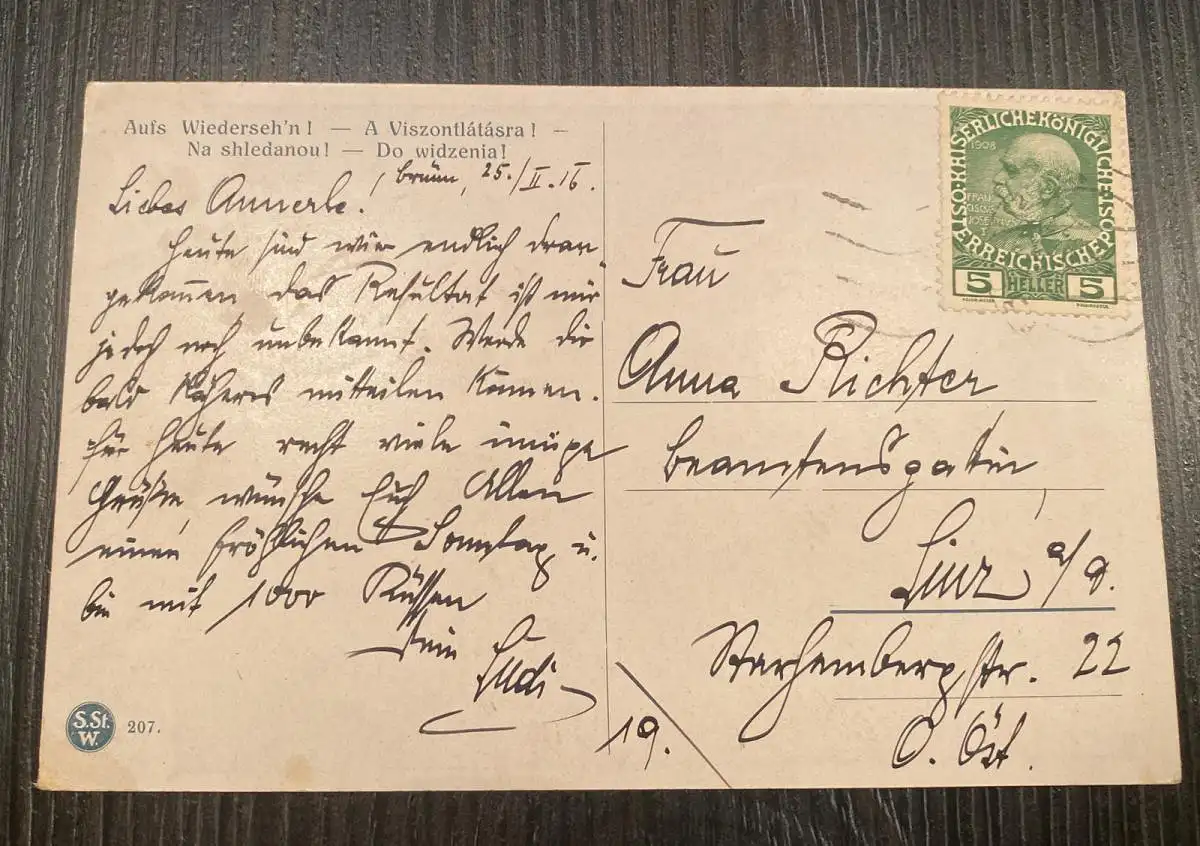 Aufs Wiederseh'n! — A Viszontlátásra! —
Na shledanou! — Do widzenia!
Brünn, 25./II. 16.
Liebes Annerle!
Heute sind wir endlich dran-
gekommen, das Resultat ist mir
jedoch noch unbekannt. Werde dir
bald Näheres mitteilen können.
Für heute recht viele innige
Grüße, wünsche Euch Allen
einen fröhlichen Sonntag u.
bin mit 1000 Küssen
dein
S.St.
W.
207.
1908
KAISERLICHEKÖNIGLICHE ÖSTERREICHISCHE POST
FRANCISCVS JOSEPHVS I
5 HELLER 5
Frau
Anna Richter
Beamtensgattin
Linz a/D.
Starhembergstr. 22
O. Öst.
19.